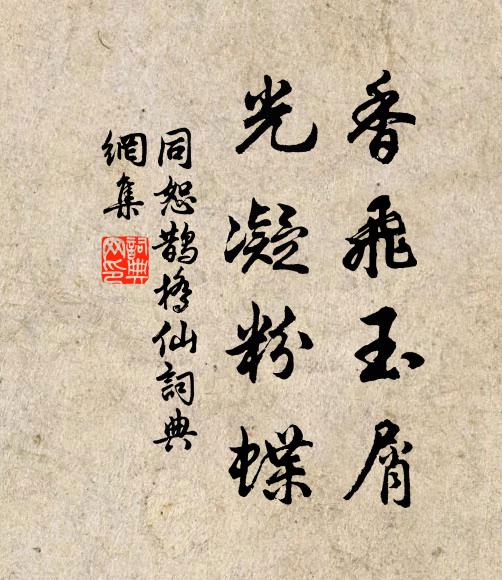 香飛玉屑
光凝粉蝶
同恕鵲橋仙詞典
網集
詞典
網印